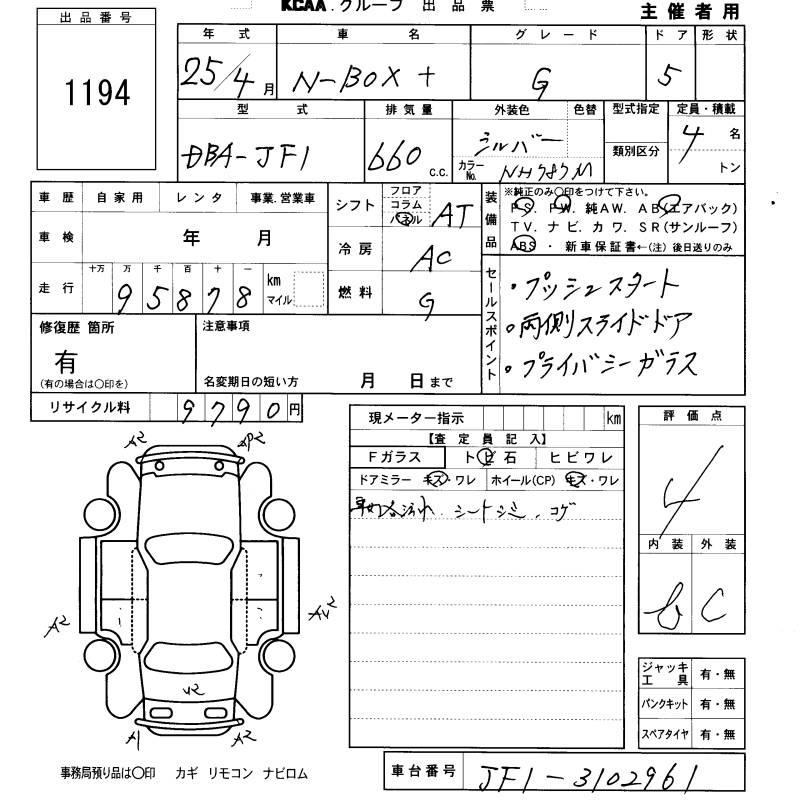 KCAA.グループ 出品票
主催者用
出品番号
1194
年式 車名 グレード ドア 形状
25/4月 N-BOX+ G 5
型式 排気量 外装色 色替 型式指定 定員・積載
DBA-JF1 660 C.C. シルバー カラーNo. NH787M 類別区分 4名 トン
車歴 自家用 レンタ 事業.営業車
車検 年 月
走行 十万 万 千 百 十 一 km マイル
95878
シフト フロア コラム パネル AT
冷房 AC
燃料 G
装備品
※純正のみ〇印をつけて下さい。
PS. PW. 純AW. AB(エアバック)
TV. ナビ. カワ. SR(サンルーフ)
ABS ・ 新車保証書←(注) 後日送りのみ
セールスポイント
・プッシュスタート
・両側スライドドア
・プライバシーガラス
修復歴 箇所
有
(有の場合は〇印を)
注意事項
名変期日の短い方 月 日まで
リサイクル料 9790円
現メーター指示 km
【査定員記入】
Fガラス トビ石 ヒビワレ
ドアミラー キズ・ワレ ホイール(CP) キズ・ワレ
シートシミ、コゲ
評価点
4
内装 外装
b C
ジャッキ 工具 有・無
パンクキット 有・無
スペアタイヤ 有・無
A2
A2
A2
A1 A2
事務局預り品は〇印 カギ リモコン ナビロム
車台番号 JF1-3102961